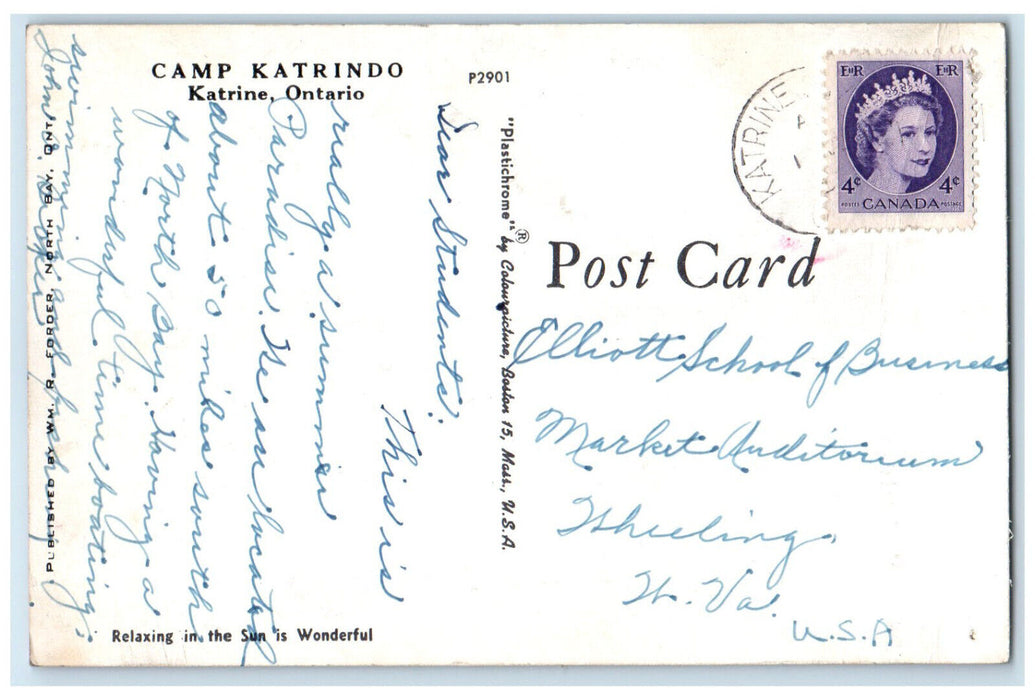 CAMP KATRINDO
Katrine, Ontario
P2901
Dear Students:
This is
really a summer
Paradise. We are located
about 50 miles south
of North Bay. Having a
wonderful time boating,
swimming and fishing.
John
PUBLISHED BY WM. R. FORDER, NORTH BAY, ONT.
Relaxing in the Sun is Wonderful
"Plastichrome"® by Colourpicture, Boston 15, Mass., U.S.A.
KATRINE
EIIR EIIR
4¢ 4¢
POSTES CANADA POSTAGE
Post Card
Elliott School of Business
Market Auditorium
Wheeling,
W. Va.
U.S.A